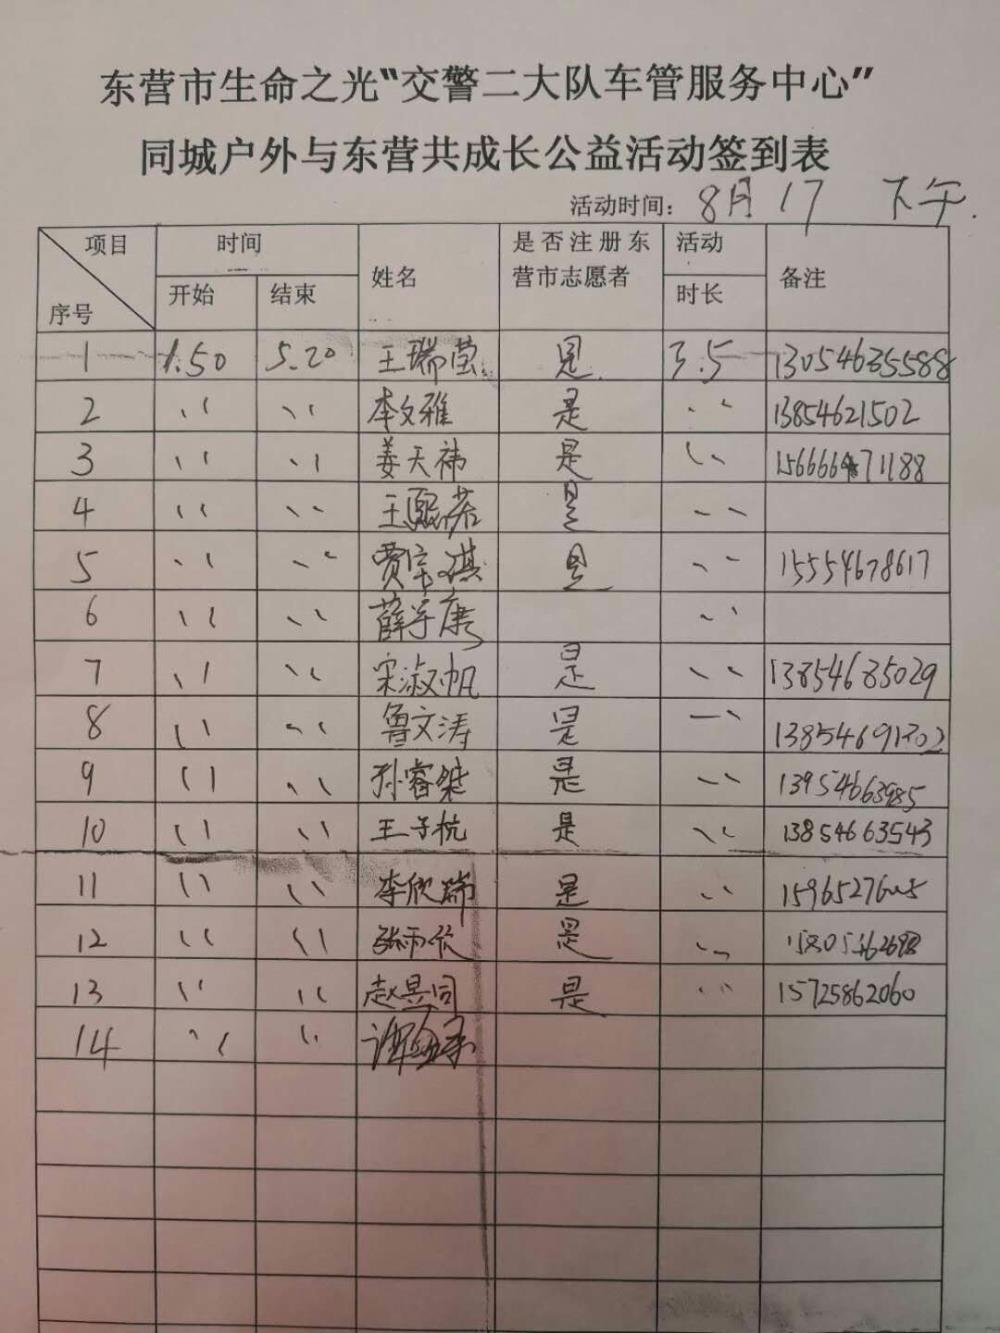 东营市生命之光“交警二大队车管服务中心”
同城户外与东营共成长公益活动签到表
活动时间：8月17 下午.
项目 序号 时间 开始 结束 姓名 是否注册东营市志愿者 活动时长 备注
1 1.50 5.20 王瑞莹 是 3.5 13054635588
2 〃 〃 李文雅 是 〃 13854621502
3 〃 〃 姜天祎 是 〃
4 〃 〃 王熙若 是 〃
5 〃 〃 贾宇祺 是 〃 15554678617
6 〃 〃 薛宇康 〃
7 〃 〃 宋淑帆 是 〃 13854685029
8 〃 〃 鲁文涛 是 〃 13854691302
9 〃 〃 孙睿桀 是 〃 13954663985
10 〃 〃 王子杭 是 〃 13854663543
11 〃 〃 李欣瑞 是 〃
12 〃 〃 是 〃
13 〃 〃 赵昱同 是 〃 15725862060
14 〃 〃